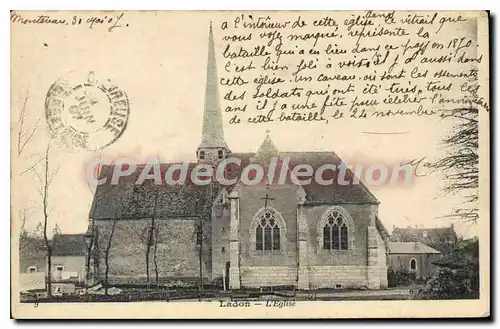 Montereau, 31 Mai 07.
à l'intérieur de cette église dans le vitrail que
vous voyez marqué, représente la
bataille qui a eu lieu dans ce pays en 1870
c'est bien joli à visiter il y a aussi dans
cette église un caveau où sont les ossements
des soldats qui ont été tués, tous les
ans il y a une fête pour célébrer l'anniversaire
de cette bataille, le 24 novembre
CPRPHIL.COM
9
Ladon — L'Eglise